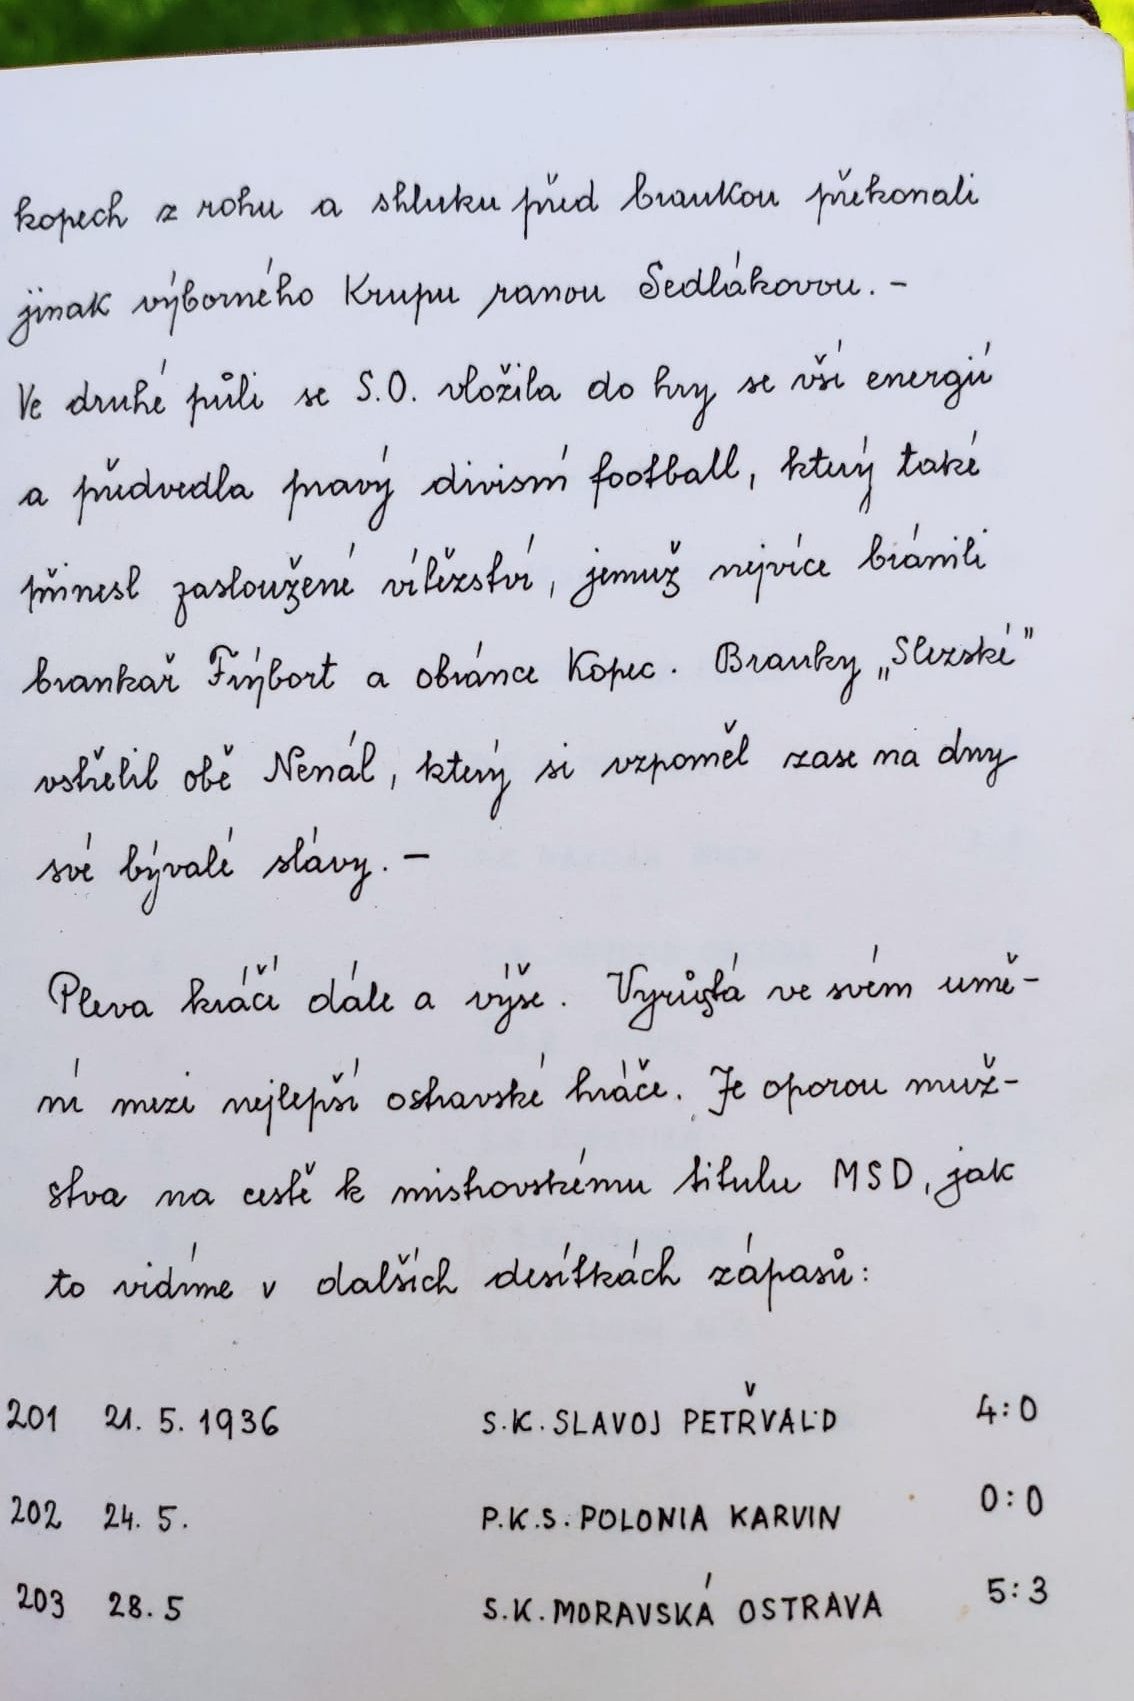 kopech z rohu a shluku před brankou překonali
jinak výborného Krupu ranou Sedlákovou. -
Ve druhé půli se S.O. vložila do hry se vší energií
a předvedla pravý divisní football, který také
přinesl zasloužené vítězství, jemuž nejvíce bránili
brankař Frýbort a obránce Kopec. Branky „Slezské"
vstřelil obě Nenál, který si vzpoměl zase na dny
své bývalé slávy. -
Pleva kráčí dále a výše. Vyrůstá ve svém umě-
ní mezi nejlepší ostravské hráče. Je oporou muž-
stva na cestě k mistrovskému titulu MSD, jak
to vidíme v dalších desítkách zápasů:
201 21. 5. 1936 S.K. SLAVOJ PETŘVALD 4:0
202 24. 5. P.K.S. POLONIA KARVIN 0:0
203 28. 5 S.K. MORAVSKÁ OSTRAVA 5:3